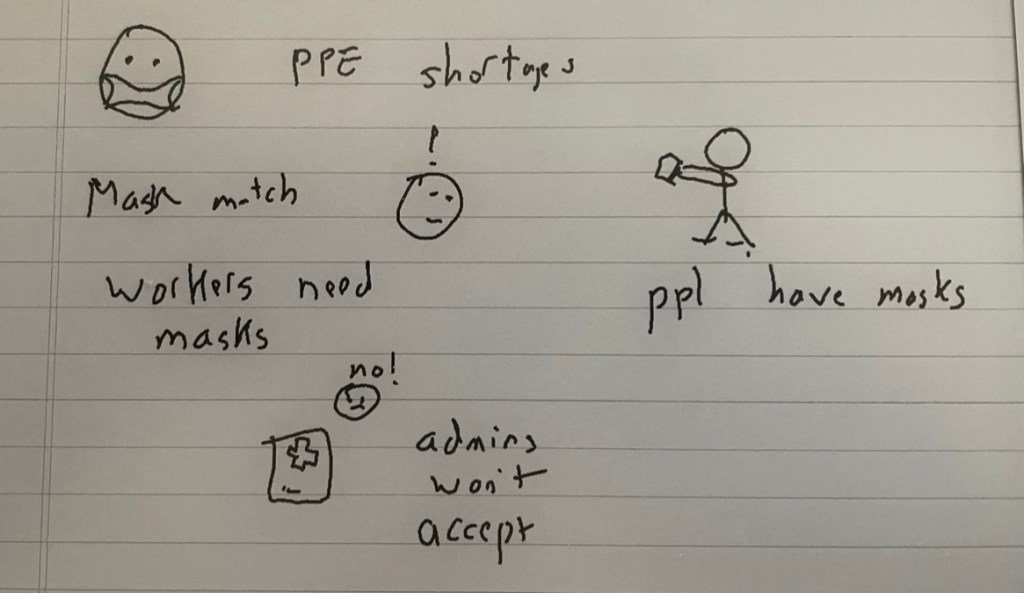 PPE shortages
!
Mask match
workers need
masks
ppl have masks
no!
admins
won't
accept